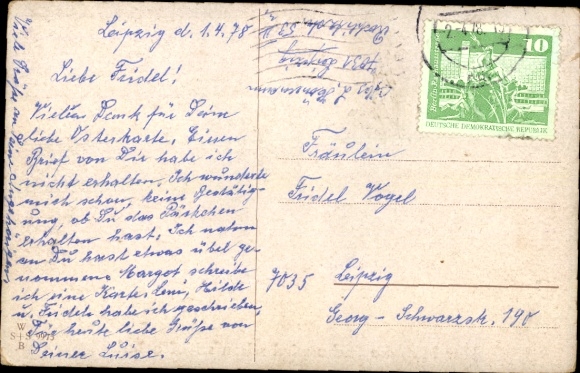 Leipzig d. 1.4.78
Liebe Fridel!
Vielen Dank für Deine
liebe Osterkarte, Einen
Brief von Dir habe ich
nicht erhalten. Ich wunderte
mich schon, keine Bestätig-
ung, ob Du das Päckchen
erhalten hast. Ich nahm
an Du hast etwas übel ge-
nommen. Margot schreibe
ich eine Karte. Leni, Hilde
u. Friedel habe ich geschrieben,
Für heute liebe Grüße von
Deiner Luise.
Viele Grüße an Deine Angehörigen
W
S+S 9973
B
Abs. L.
7031 Leipzig
53
10
Berlin-
DEUTSCHE DEMOKRATISCHE REPUBLIK
Fräulein
Fridel Vogel
7035 Leipzig
Georg-Schwarzstr. 190